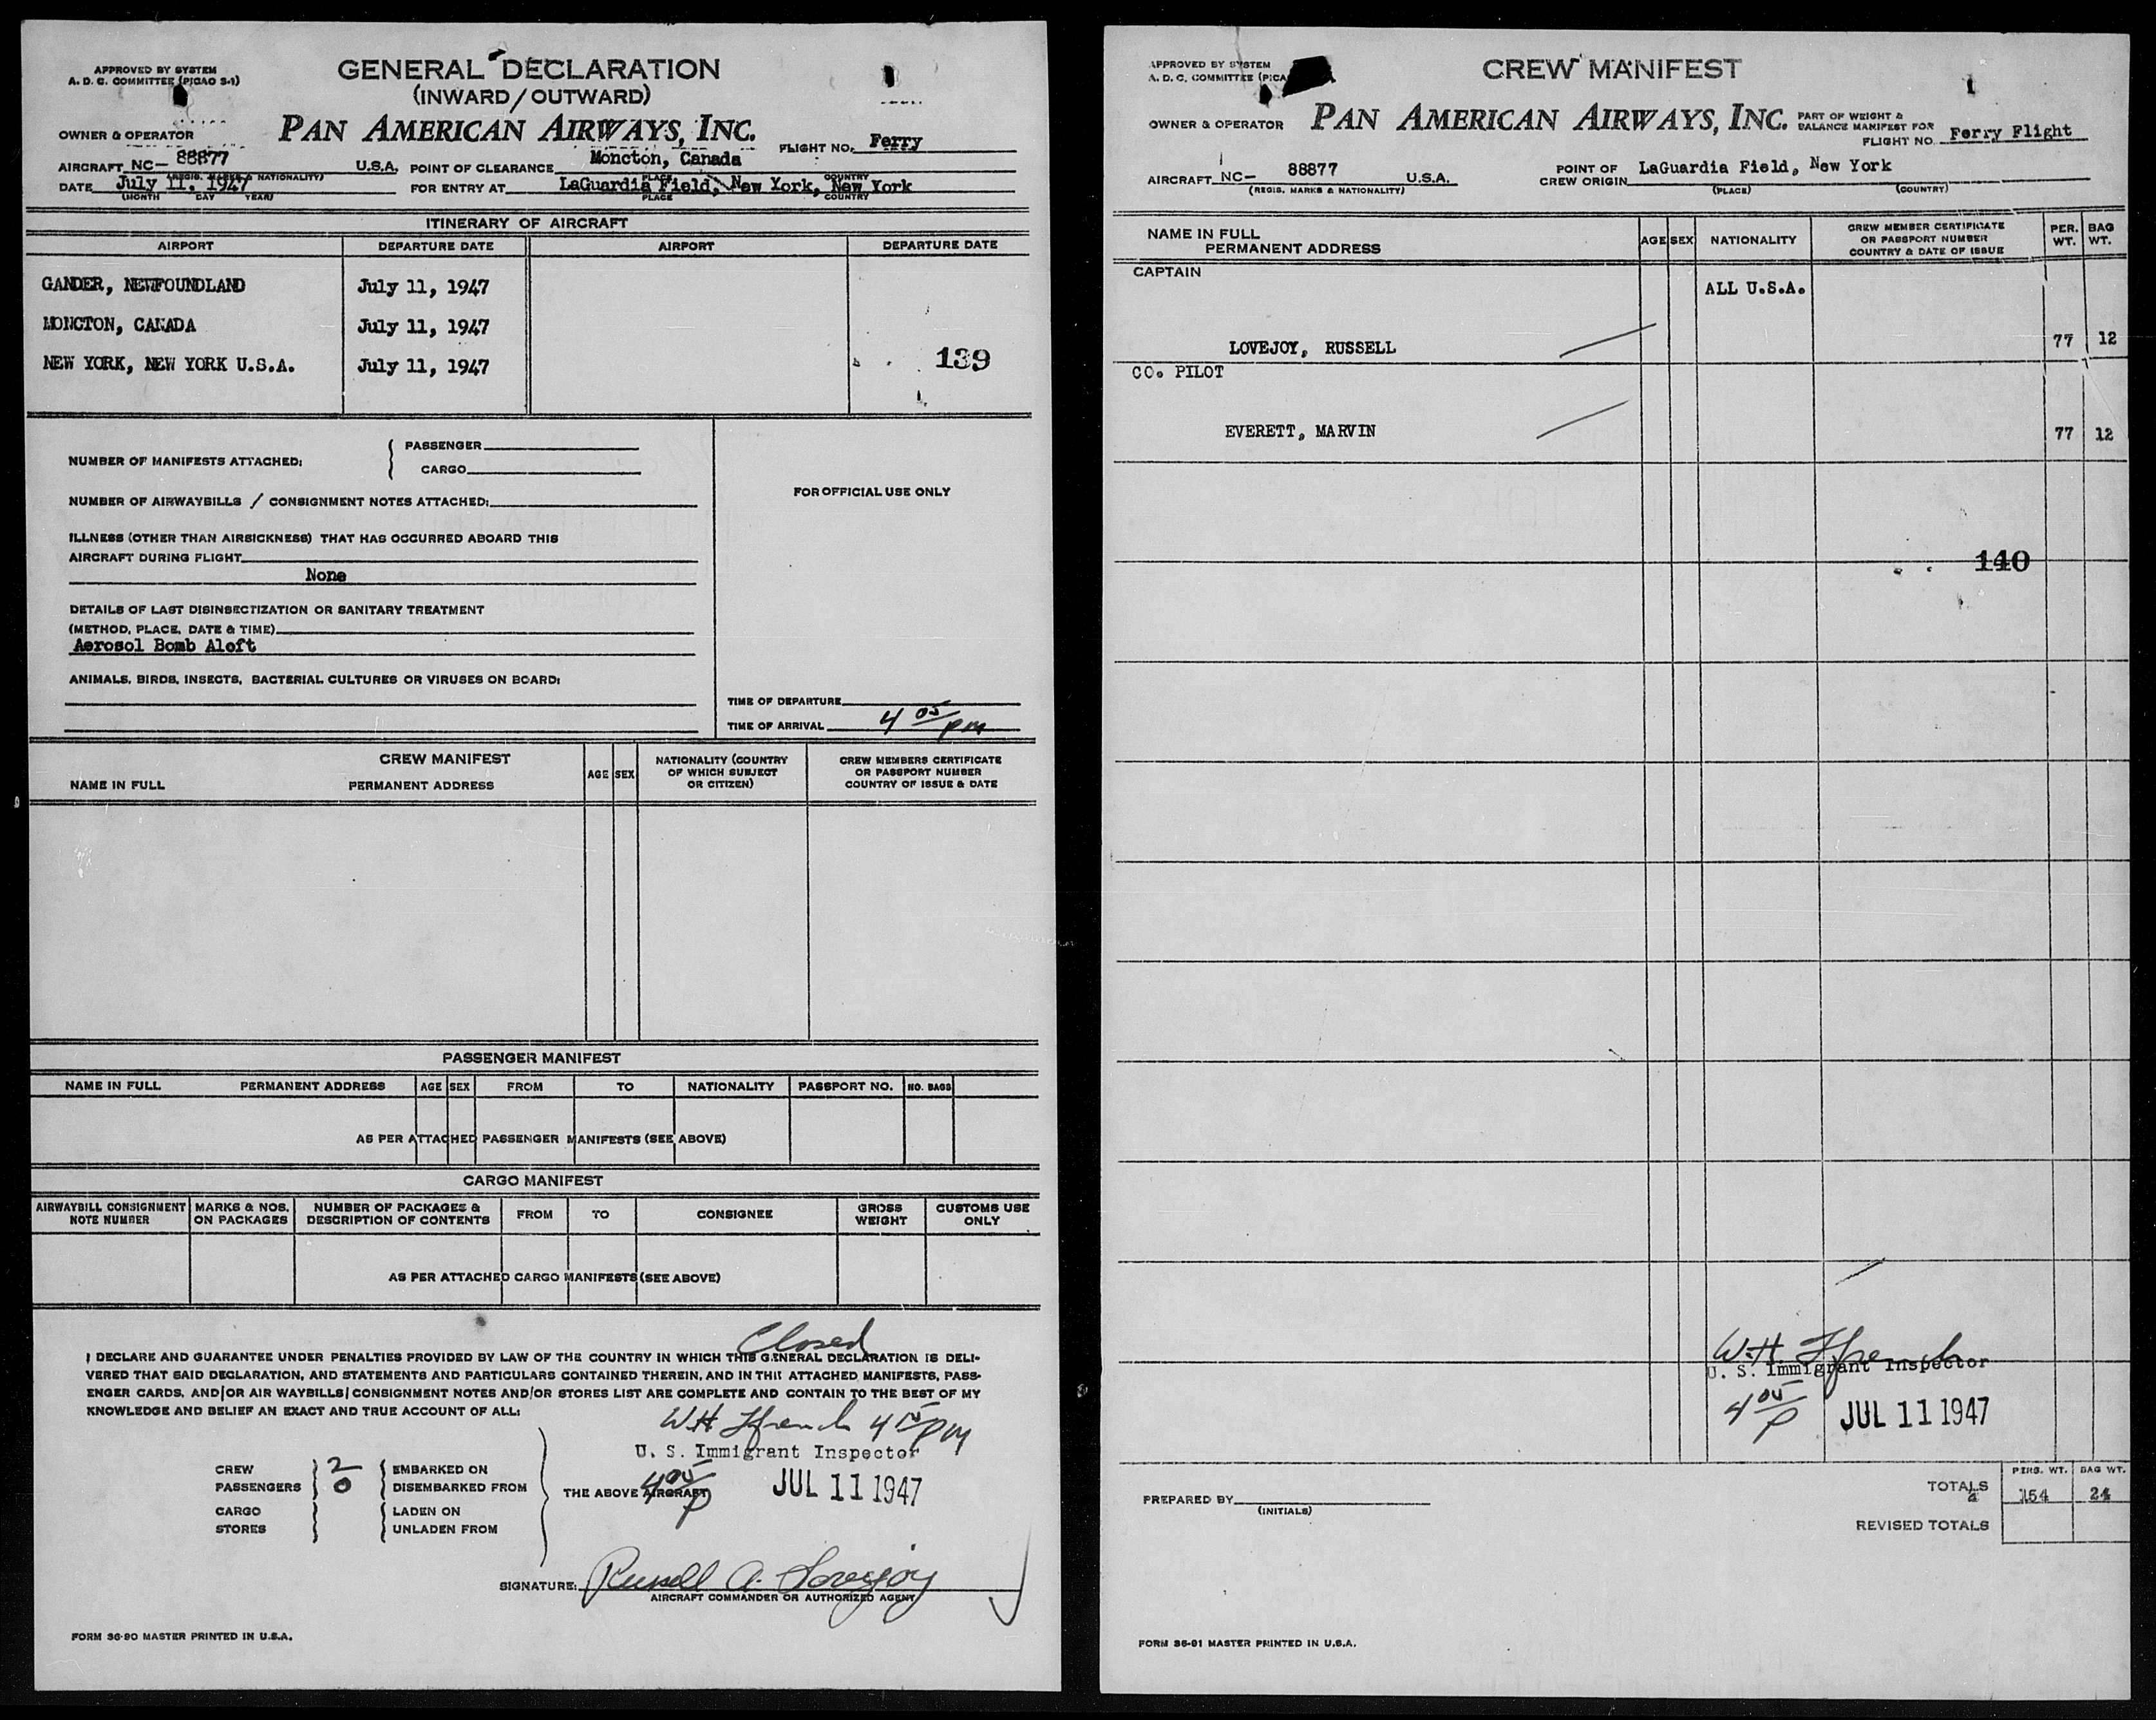 APPROVED BY SYSTEM
A. D. C. COMMITTEE (PICAO S-1)
GENERAL DECLARATION
(INWARD/OUTWARD)
OWNER & OPERATOR PAN AMERICAN AIRWAYS, INC.
FLIGHT NO. Ferry
AIRCRAFT NC- 88877 U.S.A. POINT OF CLEARANCE Moncton, Canada
(REGIS. MARKS & NATIONALITY) PLACE COUNTRY
DATE July 11, 1947 FOR ENTRY AT LaGuardia Field, New York, New York
(MONTH DAY YEAR) PLACE COUNTRY
ITINERARY OF AIRCRAFT
AIRPORT DEPARTURE DATE AIRPORT DEPARTURE DATE
GANDER, NEWFOUNDLAND July 11, 1947
MONCTON, CANADA July 11, 1947
NEW YORK, NEW YORK U.S.A. July 11, 1947
139
NUMBER OF MANIFESTS ATTACHED: PASSENGER
CARGO
NUMBER OF AIRWAYBILLS / CONSIGNMENT NOTES ATTACHED:
FOR OFFICIAL USE ONLY
ILLNESS (OTHER THAN AIRSICKNESS) THAT HAS OCCURRED ABOARD THIS
AIRCRAFT DURING FLIGHT
None
DETAILS OF LAST DISINSECTIZATION OR SANITARY TREATMENT
(METHOD, PLACE, DATE & TIME)
Aerosol Bomb Aloft
ANIMALS, BIRDS, INSECTS, BACTERIAL CULTURES OR VIRUSES ON BOARD:
TIME OF DEPARTURE
TIME OF ARRIVAL 4 05 PM
CREW MANIFEST
NAME IN FULL PERMANENT ADDRESS AGE SEX NATIONALITY (COUNTRY OF WHICH SUBJECT OR CITIZEN) CREW MEMBERS CERTIFICATE OR PASSPORT NUMBER COUNTRY OF ISSUE & DATE
PASSENGER MANIFEST
NAME IN FULL PERMANENT ADDRESS AGE SEX FROM TO NATIONALITY PASSPORT NO. NO. BAGS
AS PER ATTACHED PASSENGER MANIFESTS (SEE ABOVE)
CARGO MANIFEST
AIRWAYBILL CONSIGNMENT NOTE NUMBER MARKS & NOS. ON PACKAGES NUMBER OF PACKAGES & DESCRIPTION OF CONTENTS FROM TO CONSIGNEE GROSS WEIGHT CUSTOMS USE ONLY
AS PER ATTACHED CARGO MANIFESTS (SEE ABOVE)
Closed
I DECLARE AND GUARANTEE UNDER PENALTIES PROVIDED BY LAW OF THE COUNTRY IN WHICH THIS GENERAL DECLARATION IS DELI-
VERED THAT SAID DECLARATION, AND STATEMENTS AND PARTICULARS CONTAINED THEREIN, AND IN THE ATTACHED MANIFESTS, PASS-
ENGER CARDS, AND/OR AIR WAYBILLS/CONSIGNMENT NOTES AND/OR STORES LIST ARE COMPLETE AND CONTAIN TO THE BEST OF MY
KNOWLEDGE AND BELIEF AN EXACT AND TRUE ACCOUNT OF ALL:
W.H. Ffrench 4 15 PM
U. S. Immigrant Inspector
CREW 2 EMBARKED ON
PASSENGERS 0 DISEMBARKED FROM THE ABOVE AIRCRAFT 4 05 P JUL 11 1947
CARGO LADEN ON
STORES UNLADEN FROM
SIGNATURE: Russell A. Lovejoy
AIRCRAFT COMMANDER OR AUTHORIZED AGENT
FORM 36-90 MASTER PRINTED IN U.S.A.
APPROVED BY SYSTEM
A. D. C. COMMITTEE (PICA
CREW MANIFEST
1
OWNER & OPERATOR PAN AMERICAN AIRWAYS, INC. PART OF WEIGHT & BALANCE MANIFEST FOR
FLIGHT NO. Ferry Flight
AIRCRAFT NC- 88877 U.S.A. POINT OF CREW ORIGIN LaGuardia Field, New York
(REGIS. MARKS & NATIONALITY) (PLACE) (COUNTRY)
NAME IN FULL PERMANENT ADDRESS AGE SEX NATIONALITY CREW MEMBER CERTIFICATE OR PASSPORT NUMBER COUNTRY & DATE OF ISSUE PER. WT. BAG WT.
CAPTAIN
ALL U.S.A.
LOVEJOY, RUSSELL 77 12
CO. PILOT
EVERETT, MARVIN 77 12
140
W.H. Ffrench
U. S. Immigrant Inspector
4 05 P JUL 11 1947
PERS. WT. BAG WT.
PREPARED BY TOTALS 154 24
(INITIALS)
REVISED TOTALS
FORM 36-91 MASTER PRINTED IN U.S.A.